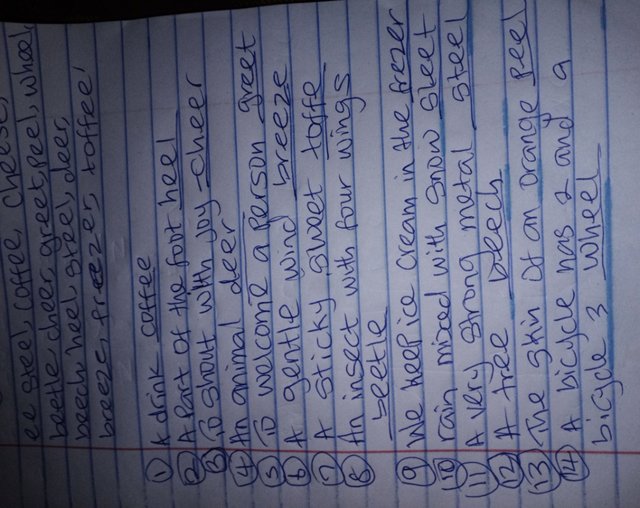 ee steel, coffee, cheese,
beetle, cheer, greet, peel, wheel,
beech, heel, steel, deer,
breeze, freezer, toffee!
① A drink coffee
② A Part of the foot heel
③ To shout with joy cheer
④ An animal deer
⑤ To welcome a person greet
⑥ A gentle wind breeze
⑦ A sticky sweet toffe
⑧ An insect with four wings
beetle
⑨ We keep ice cream in the frezer
⑩ rain mixed with snow sleet
⑪ A very strong metal steel
⑫ A tree beech
⑬ The skin of an orange peel
⑭ A bicycle has 2 and a
bicycle 3 wheel